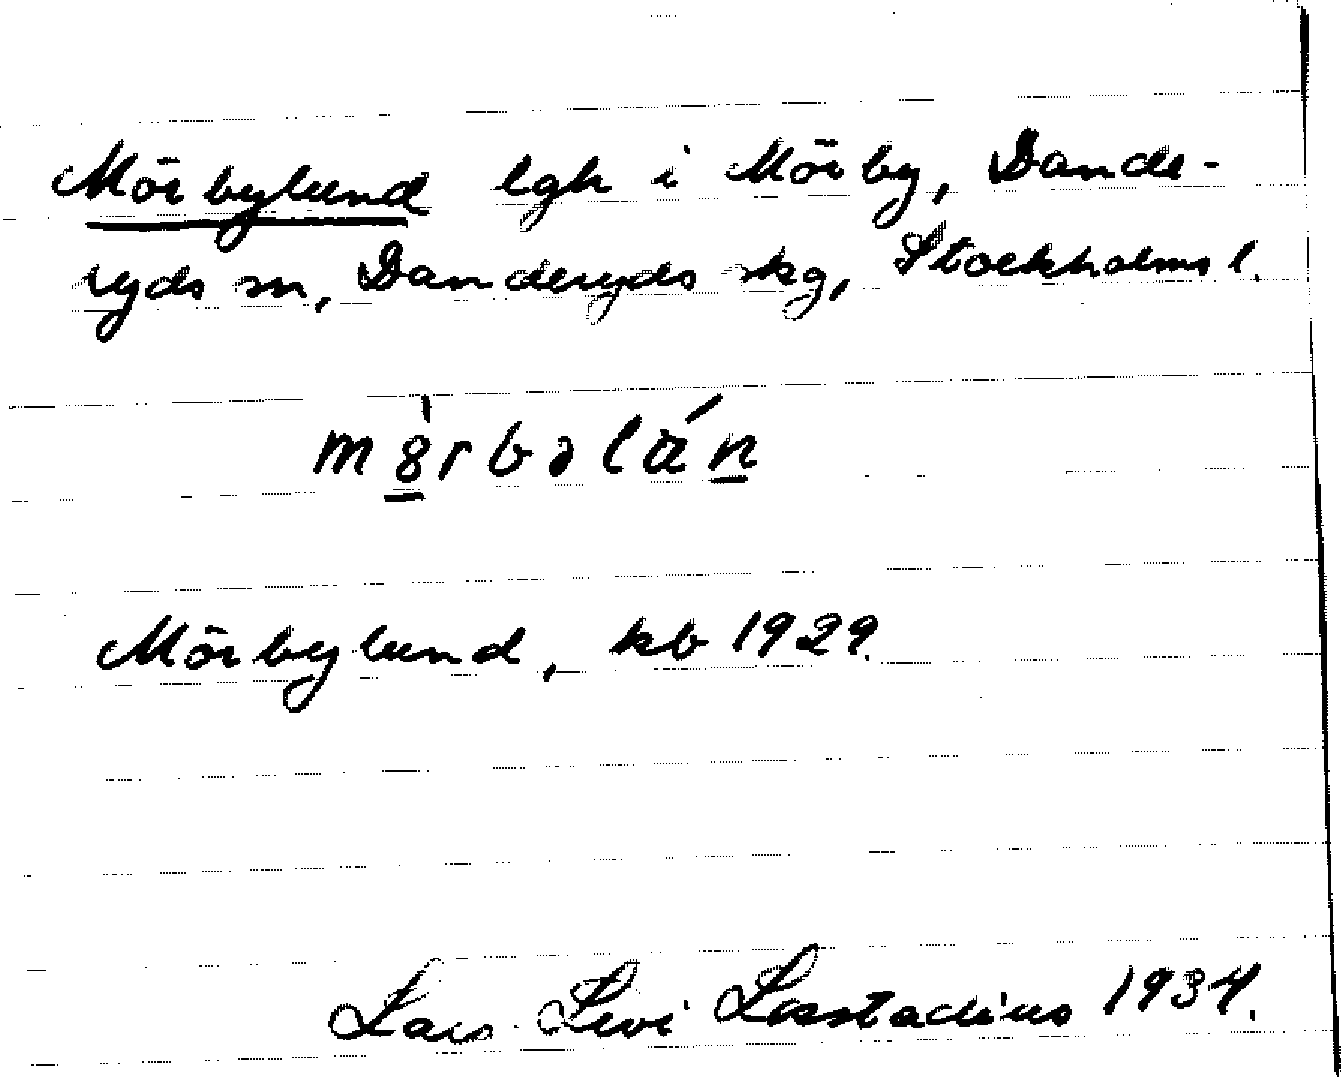 Mörbylund lgh i Mörby, Dande-
ryds sn, Danderyds skg, Stockholms l.
Mörbylund, kb 1929.
Lars Levi Læstadius 1934.